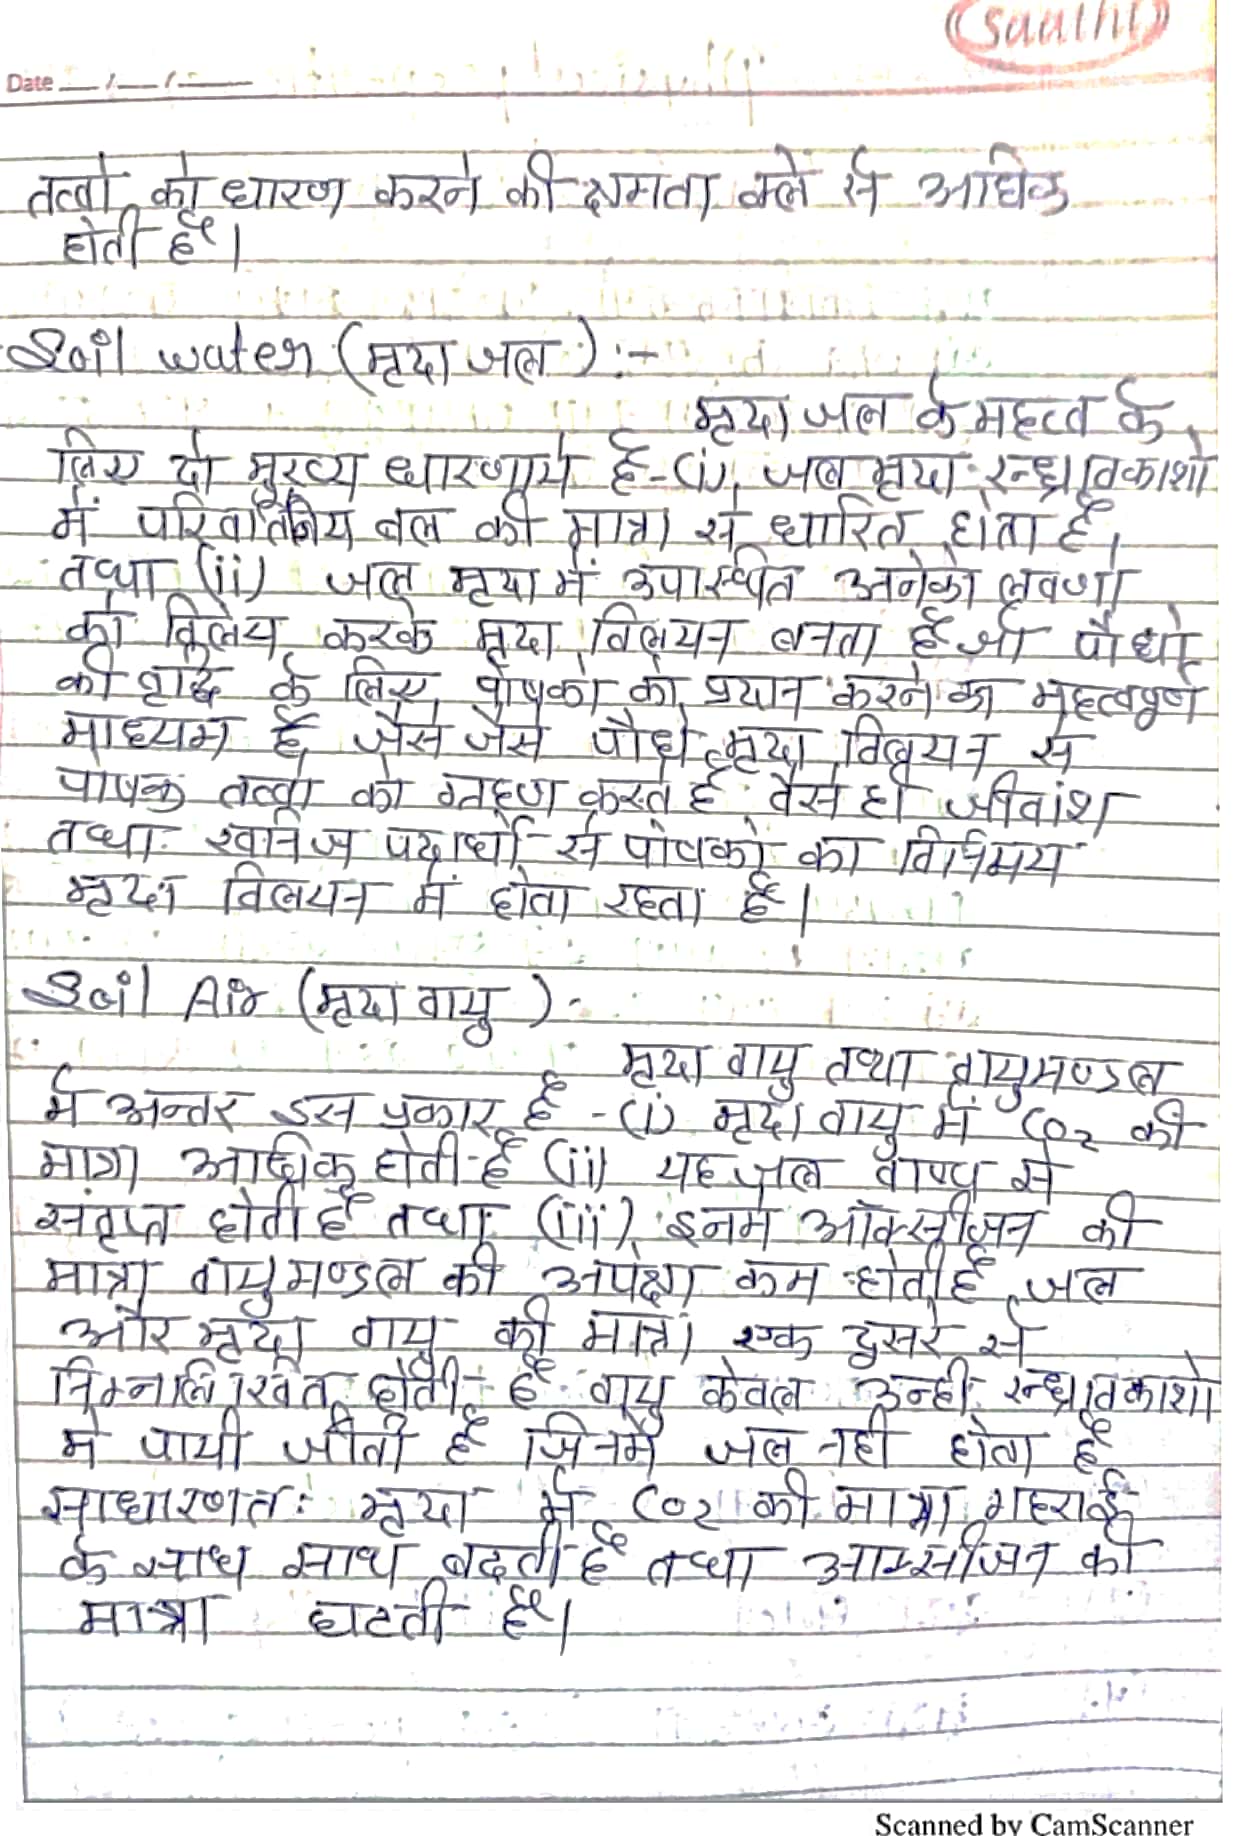 saathi
Date __/__/____
तत्वो को धारण करने की क्षमता क्ले से अधिक
होती है।
Soil water (मृदा जल) :-
मृदा जल के महत्व के
लिए दो मुख्य धारणाये है - (i) जल मृदा रन्ध्रावकाशो
में परिवर्तनीय बल की मात्रा से धारित होता है,
तथा (ii) जल मृदा में उपास्थित अनेको लवणो
को विलेय करके मृदा विलयन बनता है जो पौधो
की वृद्धि के लिए पोषको को प्रदान करने का महत्वपूर्ण
माध्यम है जैसे जैसे पौधे मृदा विलयन से
पोषक तत्वो को ग्रहण करते है वैसे ही जीवांश
तथा खनिज पदार्थो से पोषको का विनिमय
मृदा विलयन में होता रहता है।
Soil Air (मृदा वायु) -
मृदा वायु तथा वायुमण्डल
मे अन्तर इस प्रकार है - (i) मृदा वायु में CO2 की
मात्रा अधिक होती है (ii) यह जल वाष्प से
संतृप्त होती है तथा (iii) इनमे ऑक्सीजन की
मात्रा वायुमण्डल की अपेक्षा कम होती है जल
और मृदा वायु की मात्रा एक दुसरे से
निम्नलिखित होती है वायु केवल उन्ही रन्ध्रावकाशो
मे पायी जीती है जिनमें जल नही होता है
साधारणतः मृदा में CO2 की मात्रा गहराई
के साथ साथ बढती है तथा आक्सीजन की
मात्रा घटती है।
Scanned by CamScanner